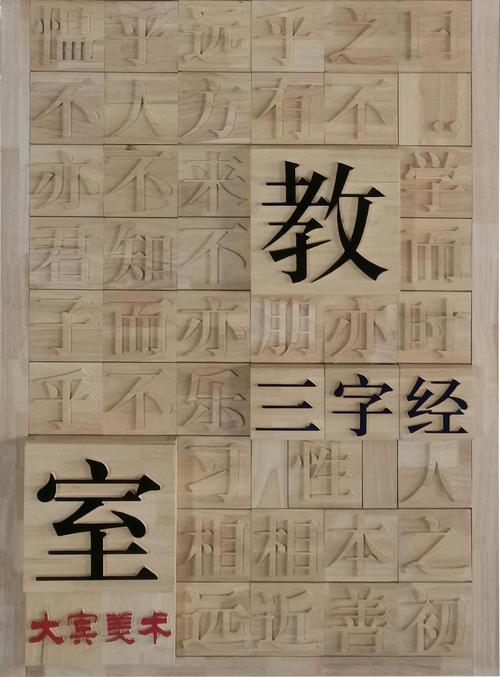 曰：学而时
之不亦
乎有朋
远方来不亦乐
乎人不知而不
愠不亦君子乎
教
室
三字经
人之初
性本善
相近
习相远
大宾美术